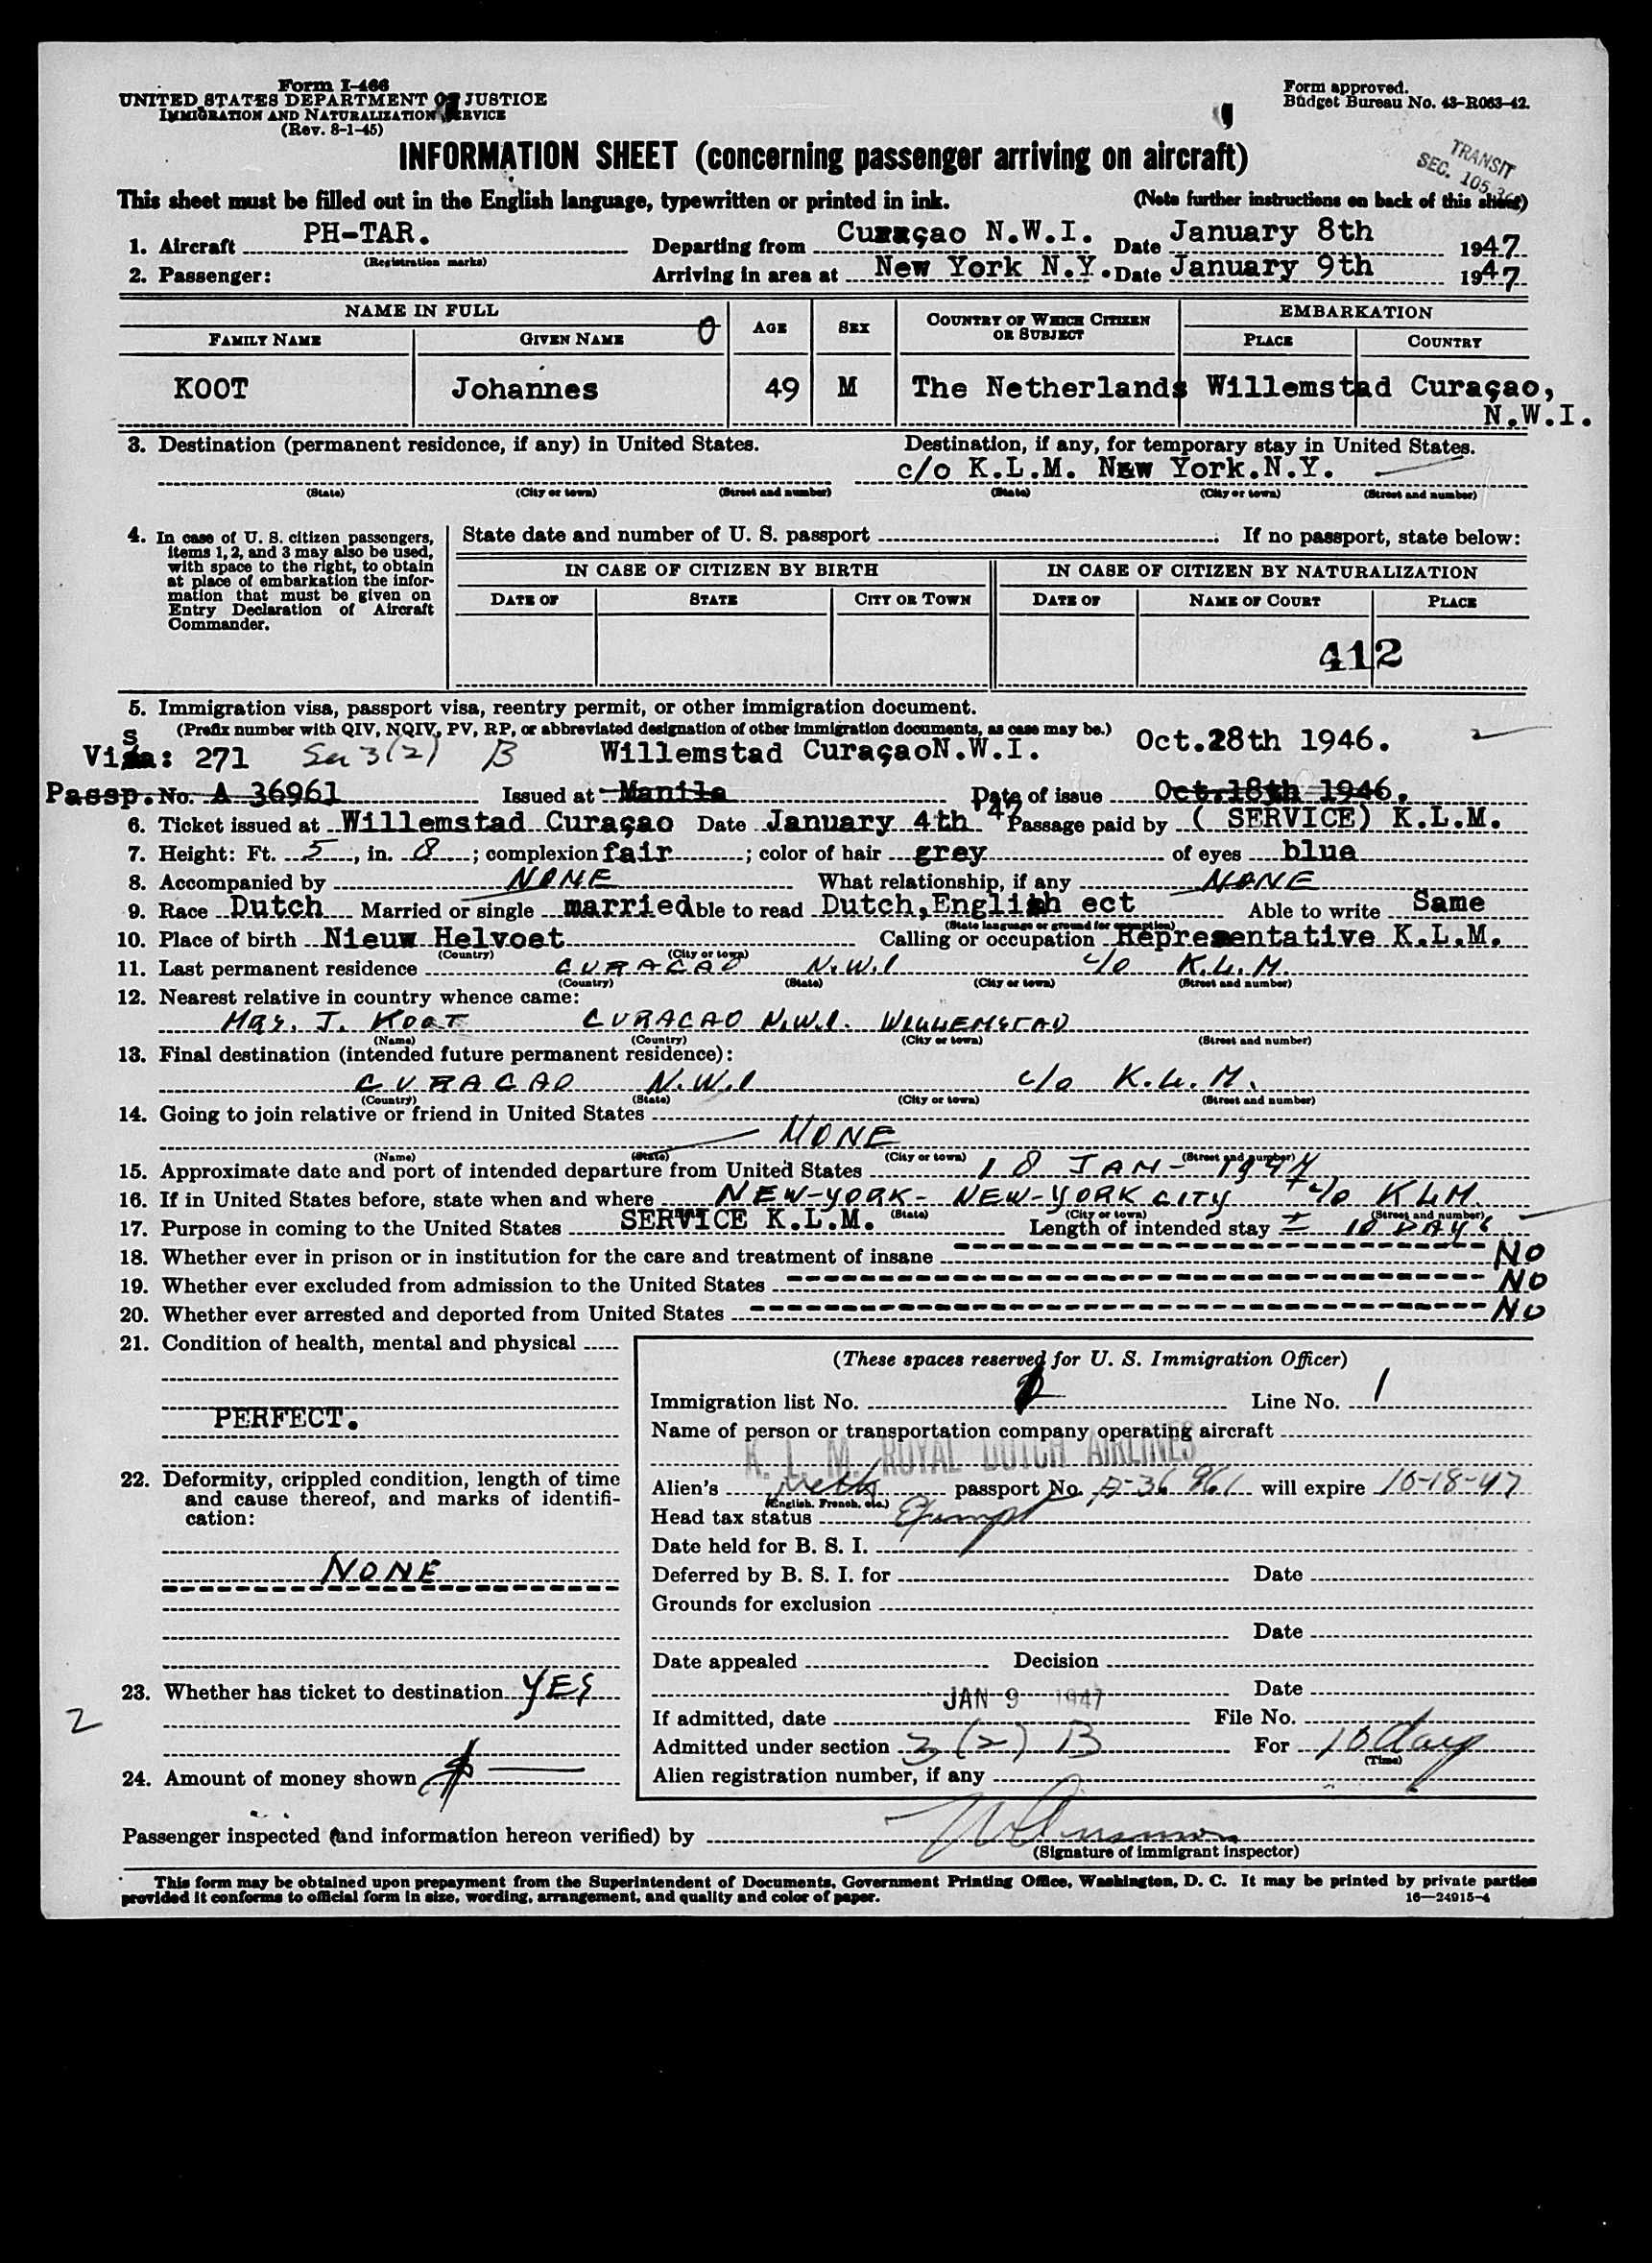 Form I-466
UNITED STATES DEPARTMENT OF JUSTICE
IMMIGRATION AND NATURALIZATION SERVICE
(Rev. 8-1-45)
Form approved.
Budget Bureau No. 43-R063-42.
INFORMATION SHEET (concerning passenger arriving on aircraft)
TRANSIT
SEC. 105.3
This sheet must be filled out in the English language, typewritten or printed in ink. (Note further instructions on back of this sheet)
1. Aircraft PH-TAR. Departing from Curaçao N.W.I. Date January 8th 1947
(Registration marks)
2. Passenger: Arriving in area at New York N.Y. Date January 9th 1947
NAME IN FULL AGE SEX COUNTRY OF WHICH CITIZEN OR SUBJECT EMBARKATION
FAMILY NAME GIVEN NAME O PLACE COUNTRY
KOOT Johannes 49 M The Netherlands Willemstad Curaçao,
N.W.I.
3. Destination (permanent residence, if any) in United States. Destination, if any, for temporary stay in United States.
c/o K.L.M. New York.N.Y.
(State) (City or town) (Street and number) (State) (City or town) (Street and number)
4. In case of U. S. citizen passengers, items 1, 2, and 3 may also be used, with space to the right, to obtain at place of embarkation the information that must be given on Entry Declaration of Aircraft Commander.
State date and number of U. S. passport ; If no passport, state below:
IN CASE OF CITIZEN BY BIRTH IN CASE OF CITIZEN BY NATURALIZATION
DATE OF STATE CITY OR TOWN DATE OF NAME OF COURT PLACE
412
5. Immigration visa, passport visa, reentry permit, or other immigration document.
(Prefix number with QIV, NQIV, PV, RP, or abbreviated designation of other immigration documents, as case may be.)
Visa: 271 Sec 3(2) B Willemstad CuraçaoN.W.I. Oct.28th 1946.
Passp.No. A 36961 Issued at Manila Date of issue Oct.18th 1946.
6. Ticket issued at Willemstad Curaçao Date January 4th '47 Passage paid by ( SERVICE) K.L.M.
7. Height: Ft. 5, in. 8; complexion fair; color of hair grey of eyes blue
8. Accompanied by NONE What relationship, if any NONE
9. Race Dutch Married or single married Able to read Dutch,English ect Able to write Same
(State language or ground for exemption)
10. Place of birth Nieuw Helvoet Calling or occupation Representative K.L.M.
(Country) (City or town)
11. Last permanent residence CURACAO N.W.I c/o K.L.M.
(Country) (State) (City or town) (Street and number)
12. Nearest relative in country whence came:
MRS. J. KOOT CURACAO N.W.I. WILLEMSTAD
(Name) (Country) (City or town) (Street and number)
13. Final destination (intended future permanent residence):
CURACAO N.W.I c/o K.L.M.
(Country) (State) (City or town) (Street and number)
14. Going to join relative or friend in United States
NONE
(Name) (State) (City or town) (Street and number)
15. Approximate date and port of intended departure from United States 18 JAN- 1947
16. If in United States before, state when and where NEW-YORK- NEW-YORK CITY c/o KLM.
(State) (City or town) (Street and number)
17. Purpose in coming to the United States SERVICE K.L.M. Length of intended stay ± 10 DAYS
18. Whether ever in prison or in institution for the care and treatment of insane NO
19. Whether ever excluded from admission to the United States NO
20. Whether ever arrested and deported from United States NO
21. Condition of health, mental and physical
PERFECT.
22. Deformity, crippled condition, length of time and cause thereof, and marks of identification:
NONE
23. Whether has ticket to destination YES
2
24. Amount of money shown $ —
(These spaces reserved for U. S. Immigration Officer)
Immigration list No. Line No. 1
Name of person or transportation company operating aircraft
K. L. M. ROYAL DUTCH AIRLINES
Alien's Neth passport No. A-36961 will expire 10-18-47
(English, French, etc.)
Head tax status Exempt
Date held for B. S. I.
Deferred by B. S. I. for Date
Grounds for exclusion
Date
Date appealed Decision
Date
If admitted, date JAN 9 1947 File No.
Admitted under section 3(2) B For 10 days
(Time)
Alien registration number, if any
Passenger inspected (and information hereon verified) by
(Signature of immigrant inspector)
This form may be obtained upon prepayment from the Superintendent of Documents, Government Printing Office, Washington, D. C. It may be printed by private parties
provided it conforms to official form in size, wording, arrangement, and quality and color of paper. 16—24915-4